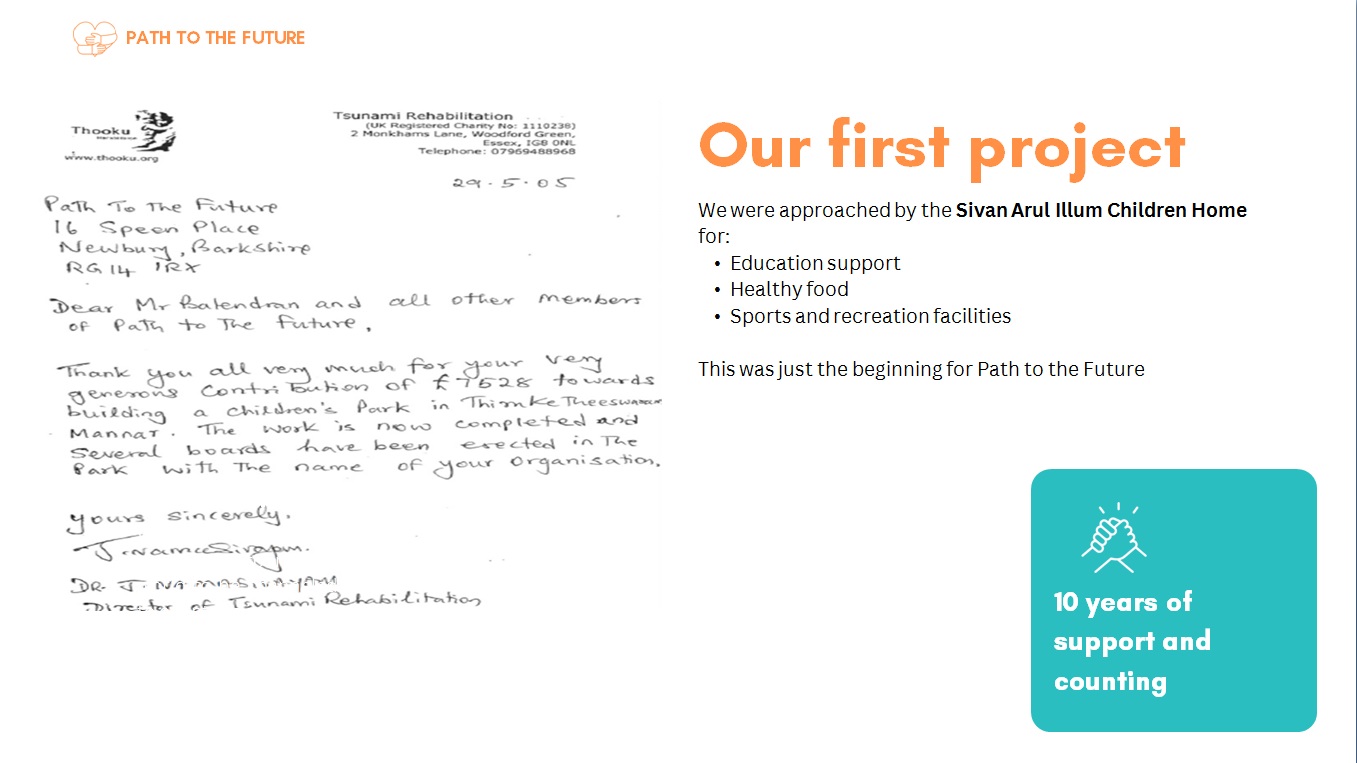 PATH TO THE FUTURE
Thooku
www.thooku.org
Tsunami Rehabilitation
(UK Registered Charity No: 1110238)
2 Monkhams Lane, Woodford Green,
Essex, IG8 0NL
Telephone: 07969488968
29.5.05
Path To The Future
16 Speen Place
Newbury, Barkshire
RG14 1RX
Dear Mr Balendran and all other members
of Path to The future,
Thank you all very much for your very
generous Contribution of £7528 towards
building a children's Park in
Mannar. The work is now completed and
Several boards have been erected in The
Park with The name of your Organisation.
yours sincerely.
DR. J. NAMASIVAYAMA
Director of Tsunami Rehabilitation
Our first project
We were approached by the Sivan Arul Illum Children Home
for:
• Education support
• Healthy food
• Sports and recreation facilities
This was just the beginning for Path to the Future
10 years of
support and
counting